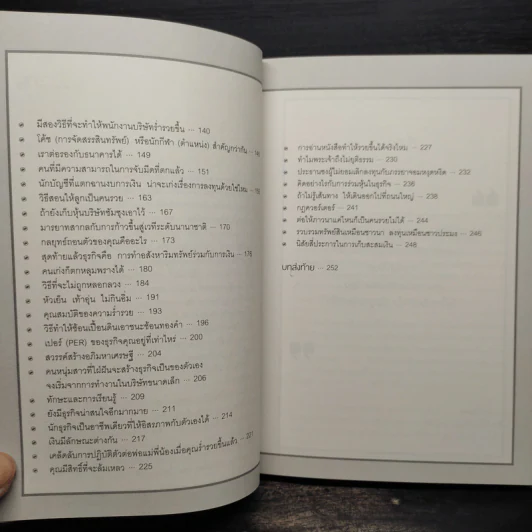 มีสองวิธีที่จะทำให้พนักงานบริษัทร่ำรวยขึ้น ··· 140
โค้ช (การจัดสรรสินทรัพย์) หรือนักกีฬา (ตำแหน่ง) สำคัญกว่ากัน ··· 146
เราต่อรองกับธนาคารได้ ··· 149
คนที่มีความสามารถในการจับมีดที่ตกแล้ว ··· 151
นักบัญชีที่แตกฉานงบการเงิน น่าจะเก่งเรื่องการลงทุนด้วยใช่ไหม ···
วิธีสอนให้ลูกเป็นคนรวย ··· 163
ถ้ายังเก็บหุ้นบริษัทซัมซุงเอาไว้ ··· 167
มารยาทสากลกับการก้าวขึ้นสู่เวทีระดับนานาชาติ ··· 170
กลยุทธ์ถอนตัวของคุณคืออะไร ··· 173
สุดท้ายแล้วธุรกิจคือ การทำอสังหาริมทรัพย์ร่วมกับการเงิน ··· 176
คนเก่งก็ตกหลุมพรางได้ ··· 180
วิธีที่จะไม่ถูกหลอกลวง ··· 184
หัวเย็น เท้าอุ่น ไม่กินอิ่ม ··· 191
คุณสมบัติของความร่ำรวย ··· 193
วิธีทำให้ช้อนเปื้อนดินเอาชนะช้อนทองคำ ··· 196
เปอร์ (PER) ของธุรกิจคุณอยู่ที่เท่าไหร่ ··· 200
สวรรค์สร้างอภิมหาเศรษฐี ··· 204
คนหนุ่มสาวที่ใฝ่ฝันจะสร้างธุรกิจเป็นของตัวเอง
จงเริ่มจากการทำงานในบริษัทขนาดเล็ก ··· 206
ทักษะและการเรียนรู้ ··· 209
ยังมีธุรกิจน่าสนใจอีกมากมาย ··· 211
นักธุรกิจเป็นอาชีพเดียวที่ให้อิสรภาพกับตัวเองได้ ··· 214
เงินมีลักษณะต่างกัน ··· 217
เคล็ดลับการปฏิบัติตัวต่อพ่อแม่พี่น้องเมื่อคุณร่ำรวยขึ้นแล้ว ··· 221
คุณมีสิทธิ์ที่จะล้มเหลว ··· 225
การอ่านหนังสือทำให้รวยขึ้นได้จริงไหม ··· 227
ทำไมพระเจ้าถึงไม่ยุติธรรม ··· 230
ประธานชงผู้ไล่ขอมเด็กลงทุนกับกรอาจอมหงุดหงิด ··· 232
คิดอย่างไรกับการร่วมหุ้นในธุรกิจ ··· 236
ถ้าไม่รู้เส้นทาง ให้เดินออกไปที่ถนนใหญ่ ··· 239
กฎควอร์เตอร์ ··· 241
ต่อให้ภาวนาแค่ไหนก็เป็นคนรวยไม่ได้ ··· 244
รวบรวมทรัพย์สินเหมือนชาวนา ลงทุนเหมือนชาวประมง ··· 246
นิสัยสี่ประการในการเก็บสะสมเงิน ··· 248
บทส่งท้าย ··· 252